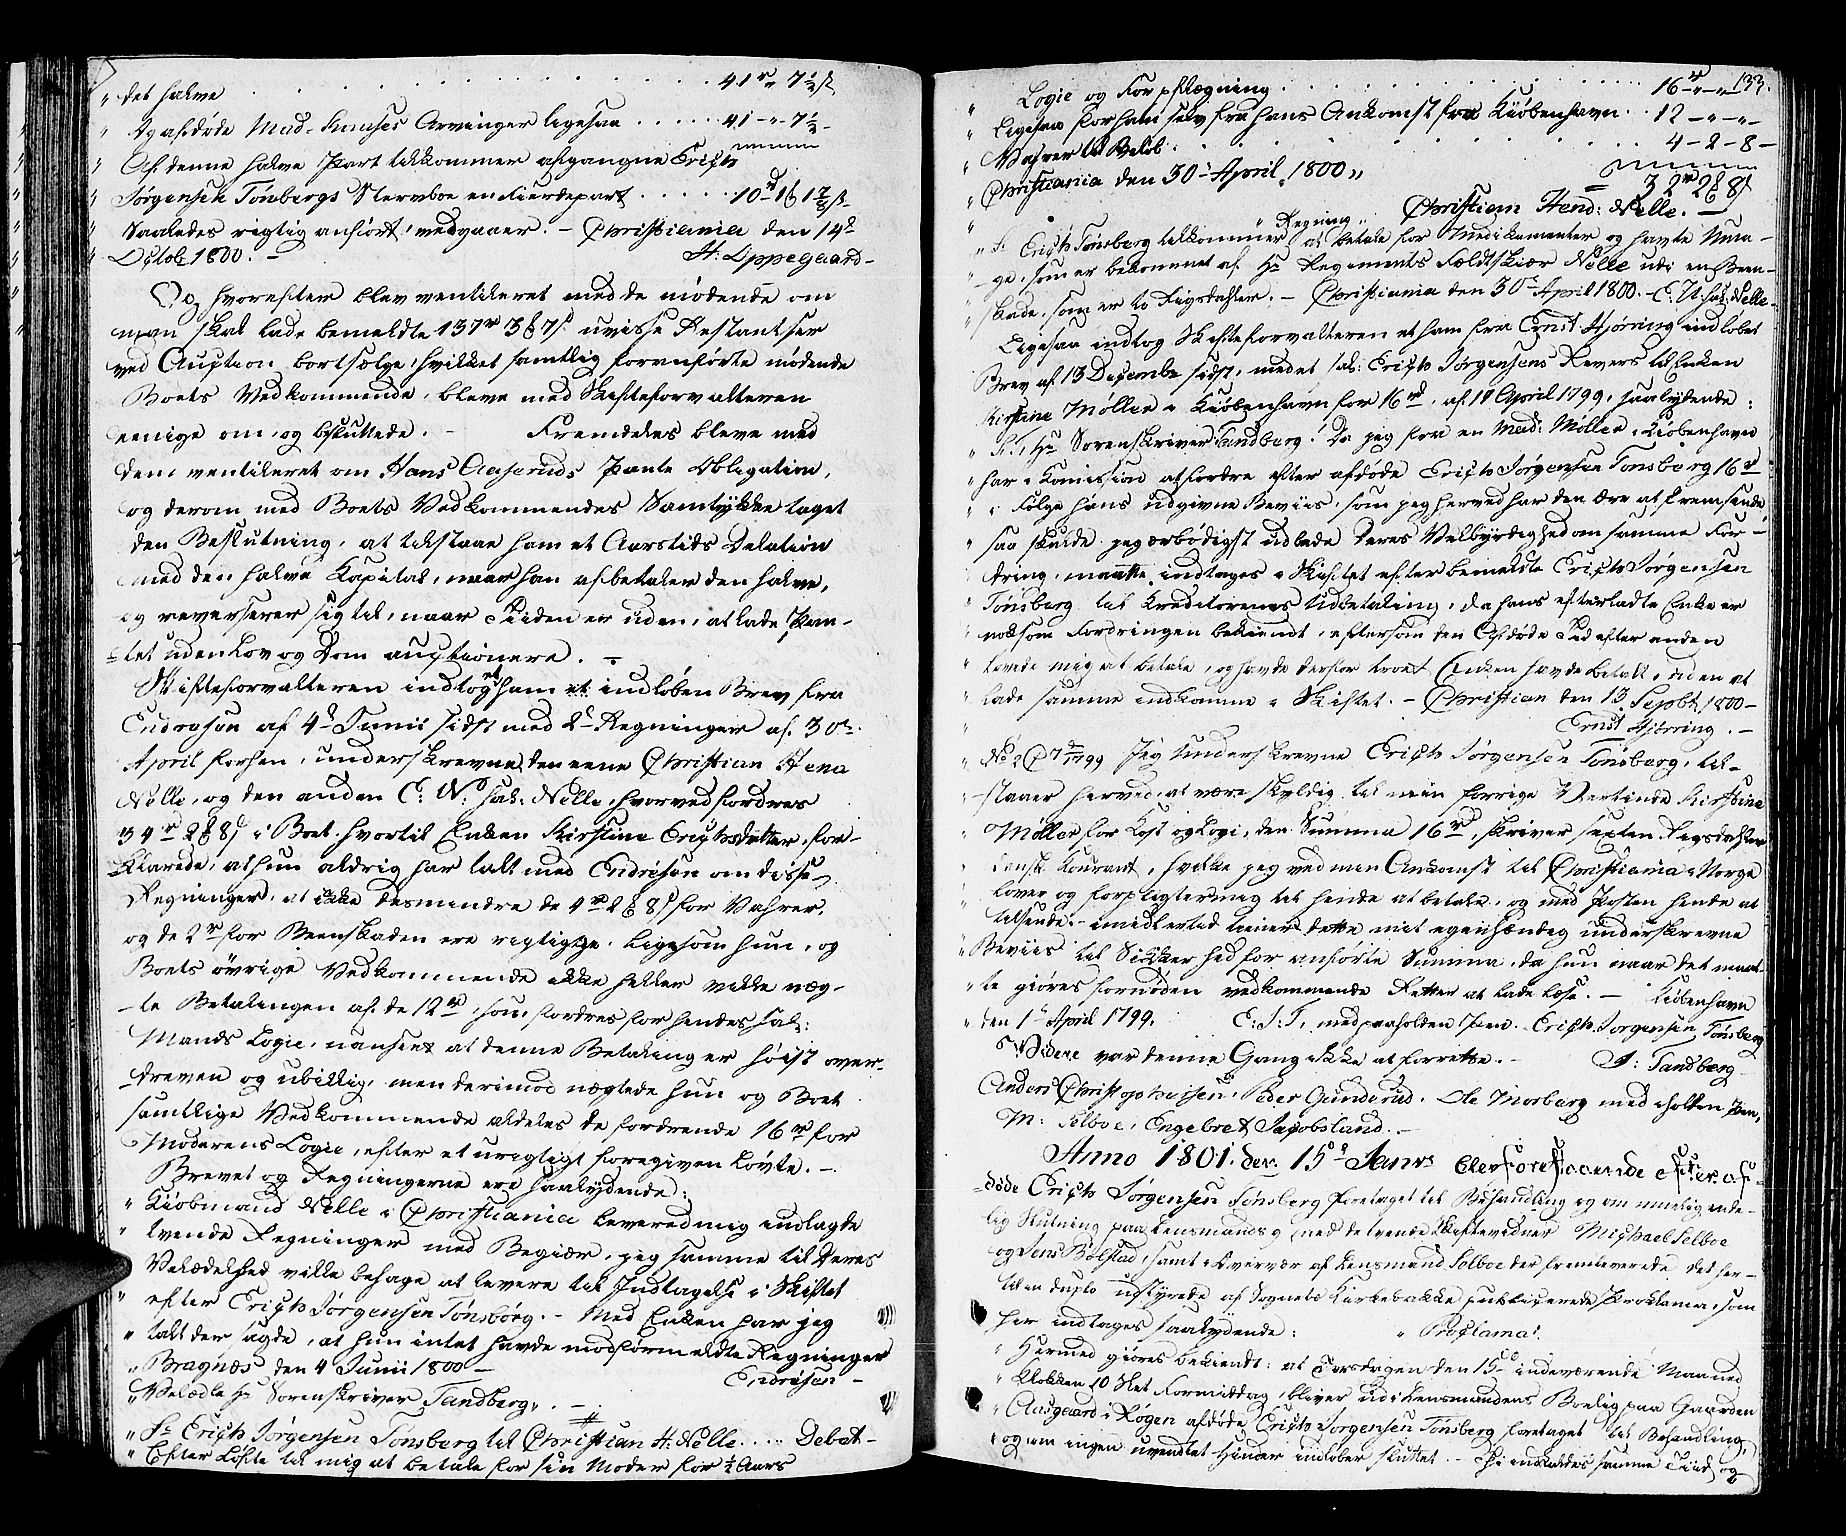 " det halve . . . . . . . . . . 41 r " 7½ s
" Og afdøde Mad. Hanses Arvinger ligesaa . . . . . 41 - " - 7½ -
" Af denne halve Part tilkommer afgangne Erich
" Jørgensen Tønbergs Stervboe en Fierdepart . . . . . 10 rd 1
" Saaledes rigtig anført, vedgaaer. - Christiania den 14d
" Octob 1800. - H: Oppegaard -
Og hvorefter blev ventileret med de mødende om
man skal lade bemeldte 137 r 3 7 s uvisse Restantser
ved Auction bortsælge, hvilket samtlig foranførte mødende
Boets Vedkommende, bleve med Skifteforvalteren
eenige om, og besluttede. - Fremdeles bleve med
dem ventileret om Hans Aaseruds Pante Obligation,
og derom med Boets Vedkommendes Samtykke taget
den Beslutning, at tilstaae ham et Aarstids Delation
med den halve Kapital, naar han afbetaler den halve,
og reverserer sig til, naar Tiiden er uden, at lade Pan-
tet uden Lov og Dom auctionere. -
Skifteforvalteren indtog et ham indløben Brev fra
Endresen af 4d Junii sidst med 2de Regninger af 30te
April forhen, underskrevne, den eene Christian Hend
Nelle, og den anden C: N: sal: Nelle, hvorved fordres
34 r 2 8 s i Boet. hvortil Enken Kirstine Erichsdatter, for-
klarede, at hun aldrig har talt med Endresen om disse
Regninger, at ikke desmindre de 4 r 2 8 s for Vahrer,
og de 2 r for Beenskaden ere rigtigge, ligesom hun, og
Boets øvrige Vedkommende ikke heller vilde næg-
te Betalingen af de 12 rd, som fordres for hendes sal:
Mands Logie, uanseet at denne Betaling er høist over-
dreven og ubillig, men derimod nægtede hun og Boet
samtlige Vedkommende aldeles de fordrende 16 r for
Moderens Logie, efter et urigtigt foregiven Løvte. -
Brevet og Regningerne ere saalydende:
" Kiøbmand Nelle i Christiania levered mig indlagte
" tvende Regninger med Begiær, jeg samme til Deres
" Velædelhed vilde behage at levere til Indtagelse i Skiftet
" efter Erich Jørgensen Tønsbørg. - Med Enken har jeg
" talt der sagde, at hun intet havde mod førmeldte Regninger
" Bragnæs den 4 Junii 1800 - Endresen -
" Velædle Hr Sorenskriver Tandberg. -
" Sr Erich Jørgensen Tønsberg til Christian H: Nelle . . . . Debet -
" Efter Løfte til mig at betale for sin Moder for ½ Aars
133.
" Logie og Forpflægning . . . . . . . . 16 r - " - "
" Ligesaa for ham selv fra hans Ankomst fra Kiøbenhavn . . 12 - " - " -
" Vahrer til Beløb . . . . . . . . 4 - 2 - 8 -
" Christiania den 30te April 1800 " 32 r 2 8 s
Christian Hend: Nelle. -
" Regning "
" Sr Erich Tønsberg tilkommer at betale for Medikamenter og havte Uma-
" ge, som er bekommet af Hr Regiments Feldtskiær Nelle udi en Been-
" skade, som er to Rigsdahler. - Christiania den 30te April 1800. - C: N: sal: Nelle -
Ligesaa indtog Skifteforvalteren et ham fra Ernst Hjørring indløbet
Brev af 13 Decembr sidst, med et sal: Erich Jørgensens Revers til Enken
Kirstine Møller i Kiøbenhavn for 16 rd, af 1 April 1799, saalydende:
" S: Hr Sorenskriver Tandberg! Da jeg for en Mad: Møller i Kiøbenhavn
" har i Komission at fordre efter afdøde Erich Jørgensen Tønsberg 16 r
" i Følge hans udgivne Beviis, som jeg herved har den ære at fremsende,
" saa skulde jeg ærbødigst udbede Deres Velbyrdighed om samme For-
" dring maatte indtages i Skiftet efter bemeldte Erich Jørgensen
" Tønsberg til Kreditorenes Udbetaling, da hans efterladte Enke er
" noksom Fordringen bekiendt, eftersom den Afdøde Tid efter anden
" lovede mig at betale, og havde derfor troet Enken havde betalt, uden at
" lade samme indkomme i Skiftet. - Christian den 13 Septbr 1800 -
" Ernst Hjørring. -
" No 2 1799 Jeg Underskrevne Erich Jørgensen Tønsberg, til-
" staaer herved, at være skyldig til min forrige Vertinde Kirstine
" Møller for Kost og Logi, den Summa 16 rd, skriver sexten Rigsdahler
" Dansk Kourant, hvilke jeg ved min Ankomst til Christiania i Norge
" lover og forpligter mig til hende at betale, og med Posten hende at
" tilsende. - imidlertid tiener dette mit egenhændig underskrevne
" Beviis til Sikkerhed for anførte Summa, da hun naar det maat-
" te giøres fornøden vedkommende Retter at lade læse. - Kiøbenhavn
" den 1te April 1799. E: J: T: med paaholden Pen. Erich Jørgensen Tønsberg
Videre var denne Gang ikke at forrette. - J: Tandberg -
Anders Christophersen, Peder Gunderud. Ole Morberg med iholden Pen,
M: Selboe, Engebret Jacobsland. -
Anno 1801. den 15de Janr blev foretstaaende efter af-
døde Erich Jørgensen Tønsberg foretaget til Behandling og om muelig ende-
lig Slutning paa Lensmandsg med de tvende Skiftevidner Michael Selboe
og Jens Bølstad, samt i Overvær af Lensmand Selboe der fremleverede det her-
til in duplo udstyrede af Sognets Kirkebakke publicerede Proklama, som
her indtages saalydende: " Proclama!
" Hermed giøres bekiendt: at Torsdagen den 15de indeværende Maaned
" Klokken 10 Slet Formiddag, bliver udi Lensmandens Boelig paa Gaarden
" Aasgaard i Røgen afdøde Erich Jørgensen Tønsberg foretaget til Behandling,
" og om ingen uventet Hinder indløber sluttet. - Thi indkaldes samme Tiid og